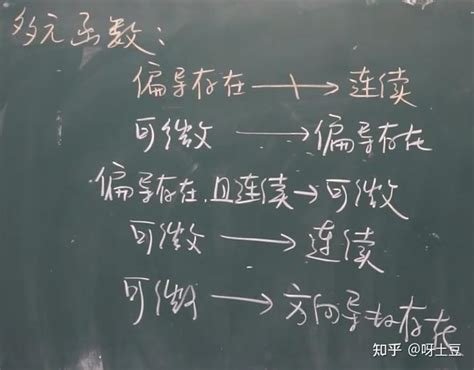 多元函数：
偏导存在 ↛ 连续
可微 → 偏导存在
偏导存在且连续 → 可微
可微 → 连续
可微 → 方向导数存在
知乎 @呀土豆